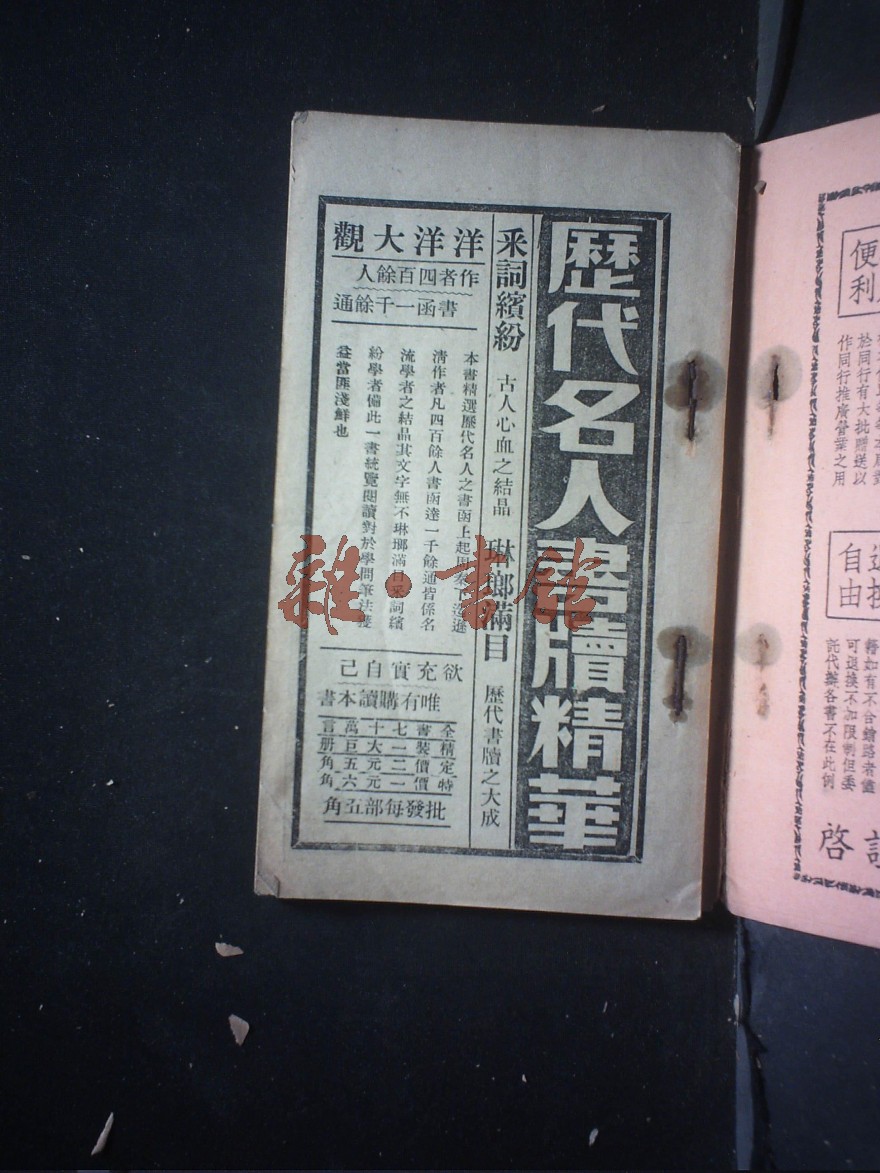 歷代名人書牘精華
釆詞繽紛 古人心血之結晶 琳瑯滿目 歷代書牘之大成
洋洋大觀
作者四百餘人
書函一千餘通
本書精選歷代名人之書函上起周秦下迄遜
清作者凡四百餘人書函達一千餘通皆係名
流學者之結晶其文字無不琳瑯滿目釆詞繽
紛學者備此一書統覽閱讀對於學問筆法獲
益當匪淺鮮也
欲充實自己
唯有購讀本書
全書七十萬言
精裝一大巨册
定價二元五角
特價一元六角
批發每部五角
便利
於同行有大批贈送以
作同行推廣營業之用
自由
籍如有不合銷路者儘
可退換不加限制但委
託代辦各書不在此例
啓
雜·書館